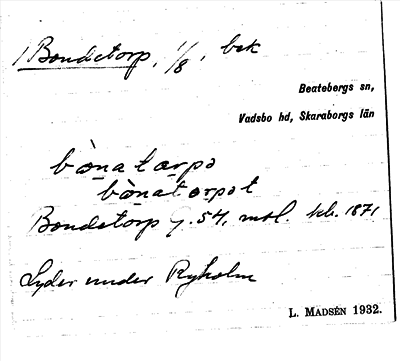 1 Bondetorp, 1/8, bek
Beatebergs sn,
Vadsbo hd, Skaraborgs län
bònatærpə
bònatərpət
Bondetorp G. 54, mtl. kb. 1871
Lyder under Ryholm
L. MADSÉN 1932.